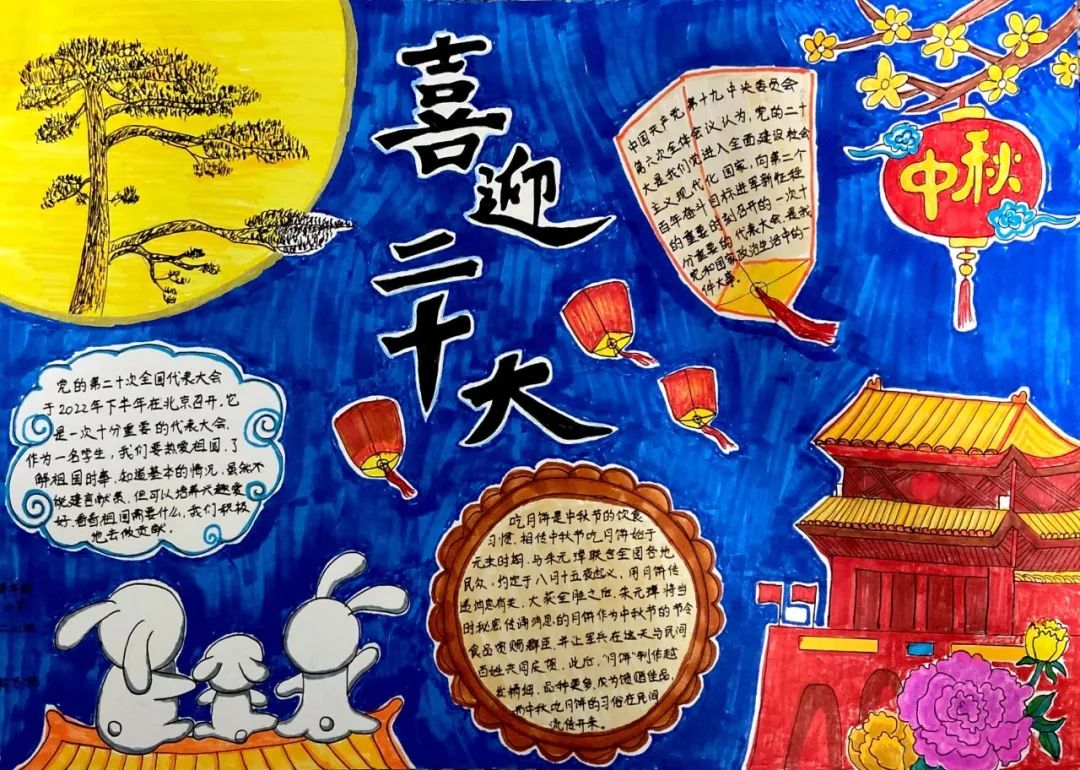 喜迎二十大
中国共产党第十九中央委员会
第六次全体会议认为，党的二十
大是我们党进入全面建设社会
主义现代化国家，向第二个
百年奋斗目标进军新征程
的重要时刻召开的一次十
分重要的代表大会是我
党和国家政治生活中的一
件大事。
中秋
党的第二十次全国代表大会
于2022年下半年在北京召开。它
是一次十分重要的代表大会.
作为一名学生，我们要热爱祖国，了
解祖国时事，知道基本的情况，虽然不
能建言献策，但可以培养兴趣爱
好.看看祖国需要什么，我们积极
地去做贡献.
吃月饼是中秋节的饮食
习惯.相传中秋节吃月饼始于
元末时期.与朱元璋联合全国各地
民众，约定于八月十五夜起义，用月饼传
递消息有关，大获全胜之后.朱元璋将当
时秘密传递消息的月饼作为中秋节的节令
食品赏赐群臣，并让军兵在这天与民间
百姓共同庆贺，此后，"月饼"制作越
发精细，品种更多，成为馈赠佳品，
而中秋吃月饼的习俗在民间
流传开来。